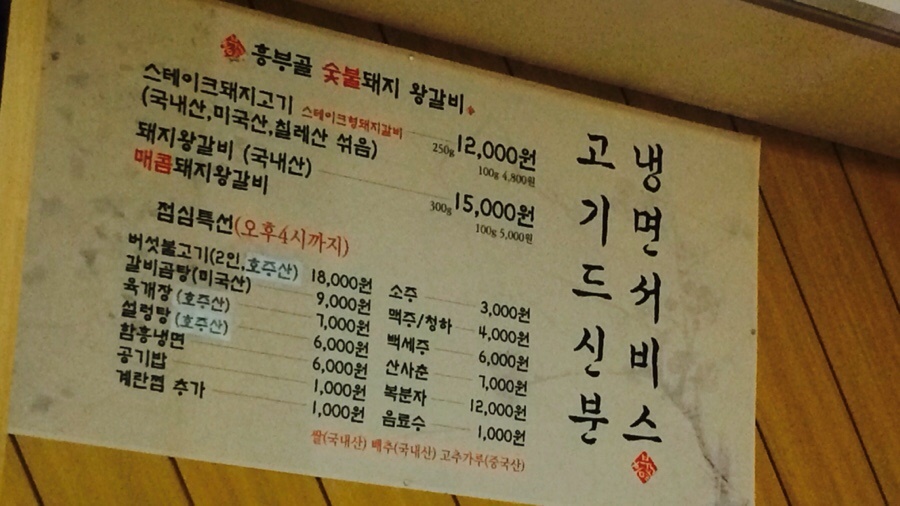 흥부골 숯불돼지 왕갈비
스테이크돼지고기 스테이크형돼지갈비
(국내산,미국산,칠레산 섞음)
250g 12,000원
100g 4,800원
돼지왕갈비 (국내산)
매콤돼지왕갈비
300g 15,000원
100g 5,000원
점심특선(오후4시까지)
버섯불고기(2인,호주산) 18,000원
갈비곰탕(미국산) 9,000원
육개장 (호주산) 7,000원
설렁탕 (호주산) 6,000원
함흥냉면 6,000원
공기밥 1,000원
계란찜 추가 1,000원
소주 3,000원
맥주/청하 4,000원
백세주 6,000원
산사춘 7,000원
복분자 12,000원
음료수 1,000원
쌀(국내산) 배추(국내산) 고추가루(중국산)
고기드신분
냉면서비스